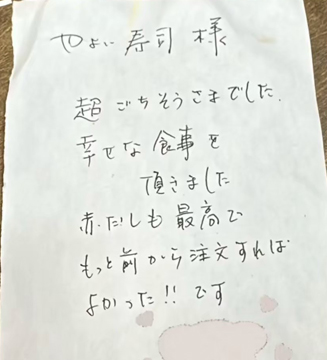 やよい寿司 様
超 ごちそうさまでした.
幸せな食事を
頂きました
赤だしも最高で
もっと前から注文すれば
よかった!! です